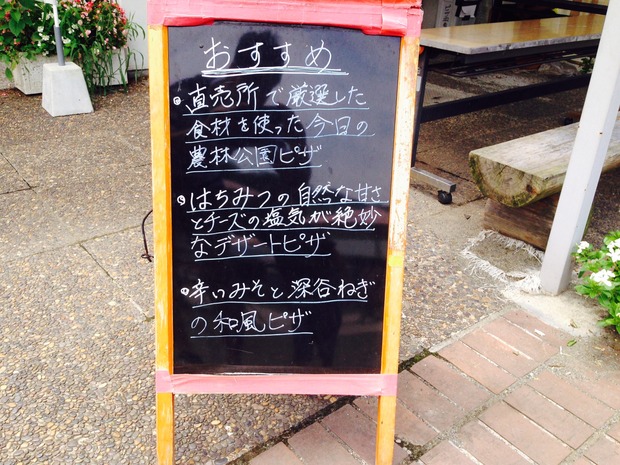 おすすめ
• 直売所で厳選した
食材を使った今日の
農林公園ピザ
• はちみつの自然な甘さ
とチーズの塩気が絶妙
なデザートピザ
• 辛いみそと深谷ねぎ
の和風ピザ